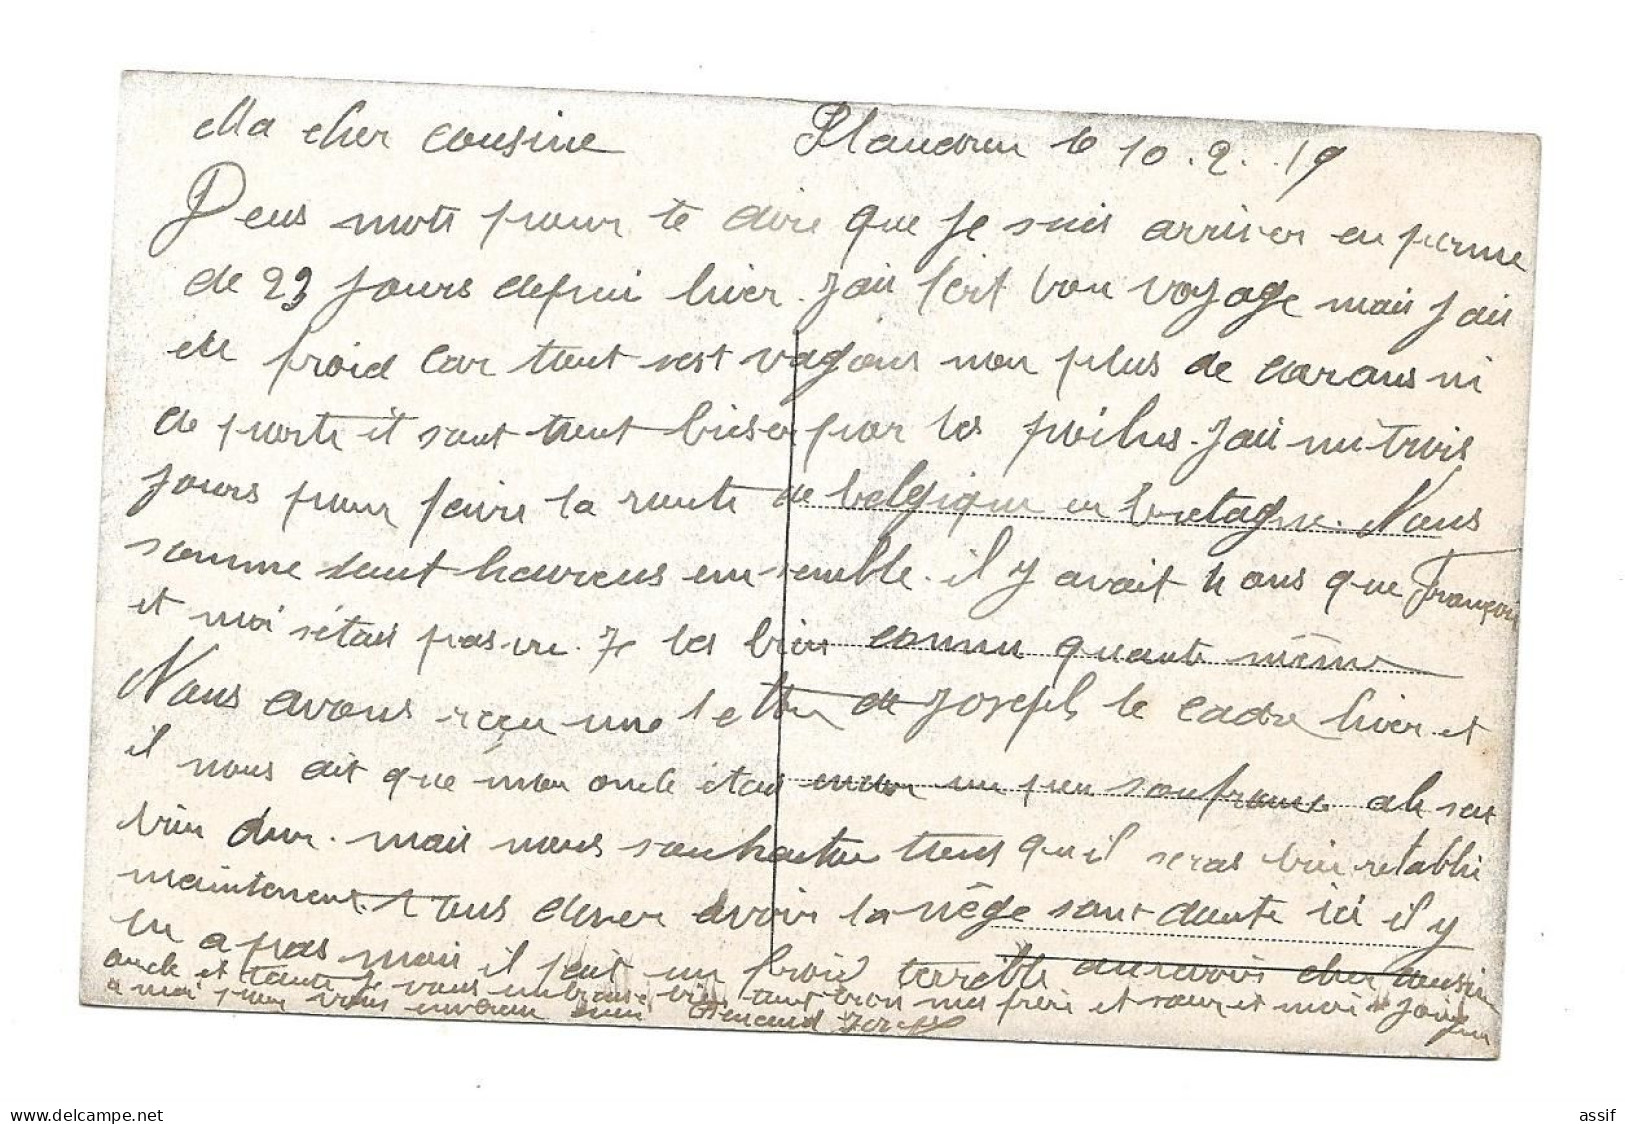 Ma cher cousine Plaudren le 10.2.19
Deus mots pour te dire que Je suis arriver en perme
de 23 Jours depui hier. Jai fait bon voyage mais Jai
eu froid car tout sest vagons non plus de caraus ni
de porte it sont tout briser par les poilus. Jai mi trois
Jours pour faire la route de belgique en bretagne. Nous
somme tout heureus emsemble. il y avait 4 ans que François
et moi sétais pas vu. Je les bien connu quante même
Nous avons reçu une lettre de Joseph le cadre hier et
il nous dit que mon oncle étais un peu soufrant ah set
bien dur. mais nous souhaiton tous quil seras bien retabli
maintenent. Vous dever avoir la nège sant doute ici il y
en a pas mais il fait un froid terrible aurevoir cher cousine
oncle et tante Je vous embrasse bien tout trois mes frère et sœur et moi Joigne
a moi pour vous envoyer Renaud Joseph
assif
www.delcampe.net